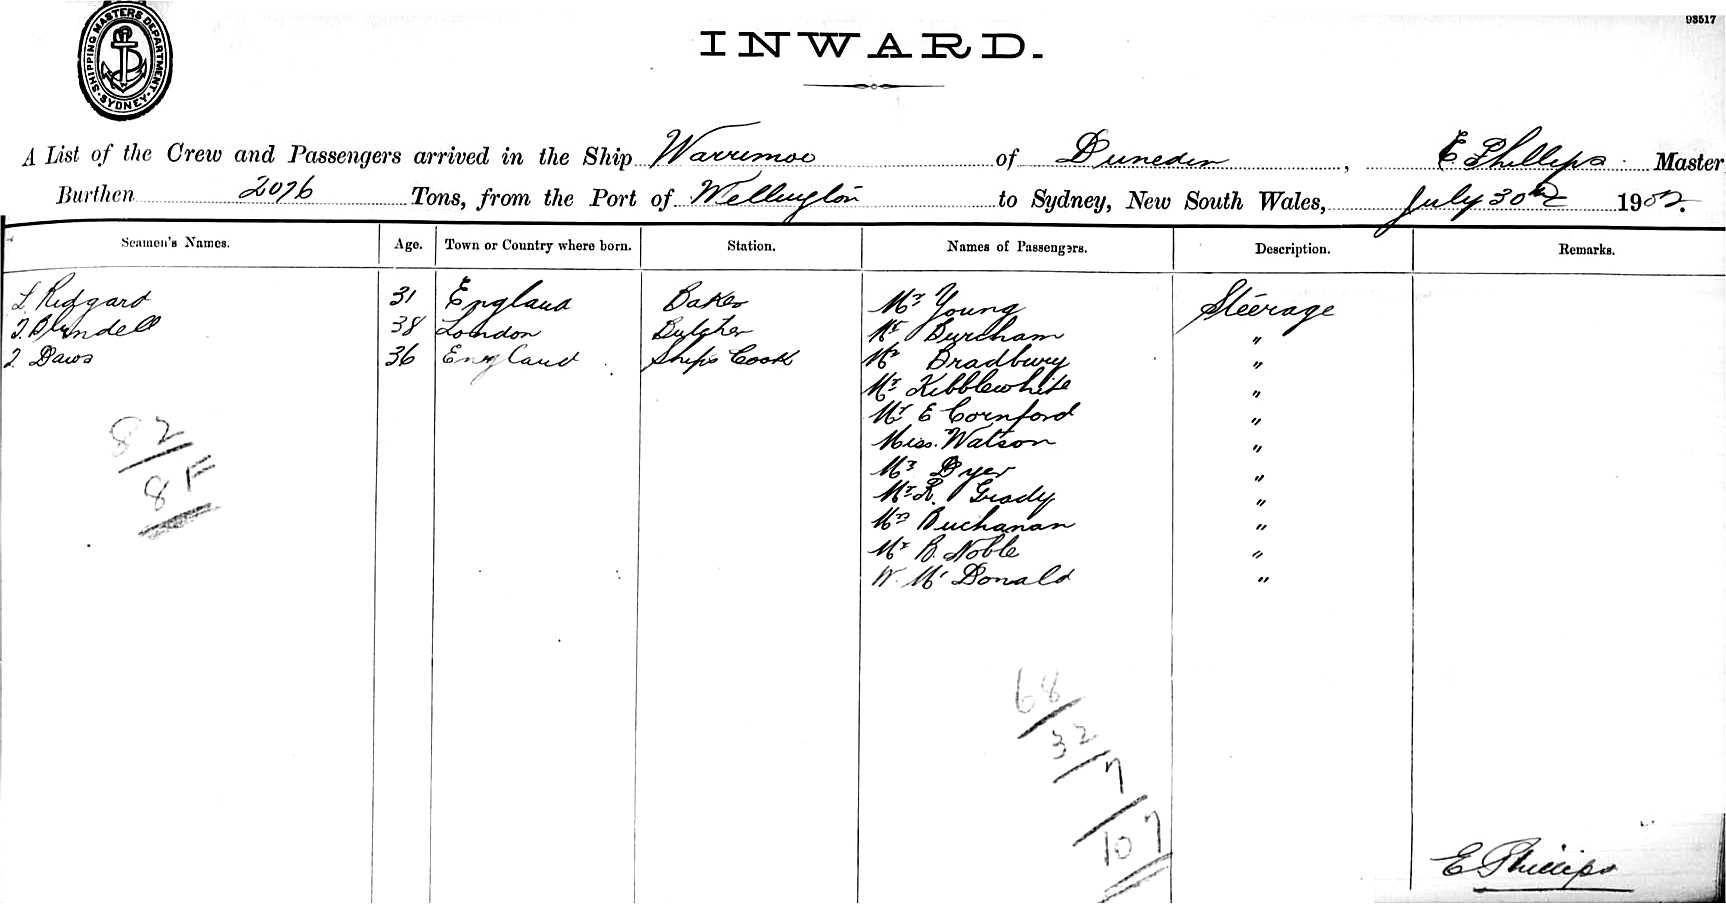 93517
SHIPPING MASTERS DEPARTMENT. SYDNEY.
INWARD.
A List of the Crew and Passengers arrived in the Ship Warrimoo of Dunedin, E. Phillips Master
Burthen 2076 Tons, from the Port of Wellington to Sydney, New South Wales, July 30th 1902.
Seamen's Names. Age. Town or Country where born. Station. Names of Passengers. Description. Remarks.
L. Ridgard 31 England Baker Mr Young Steerage
T. Blundell 38 London Butcher Mr Burcham "
T. Daws 36 England Ships Cook Mr Bradbury "
Mr Kibblewhite "
Mr E Cornford "
Miss. Watson "
Mr Dyer "
Mr R. Grady "
Mrs Buchanan "
Mr B. Noble "
W. Mc Donald "
82
8F
68
32
7
107
E Phillips